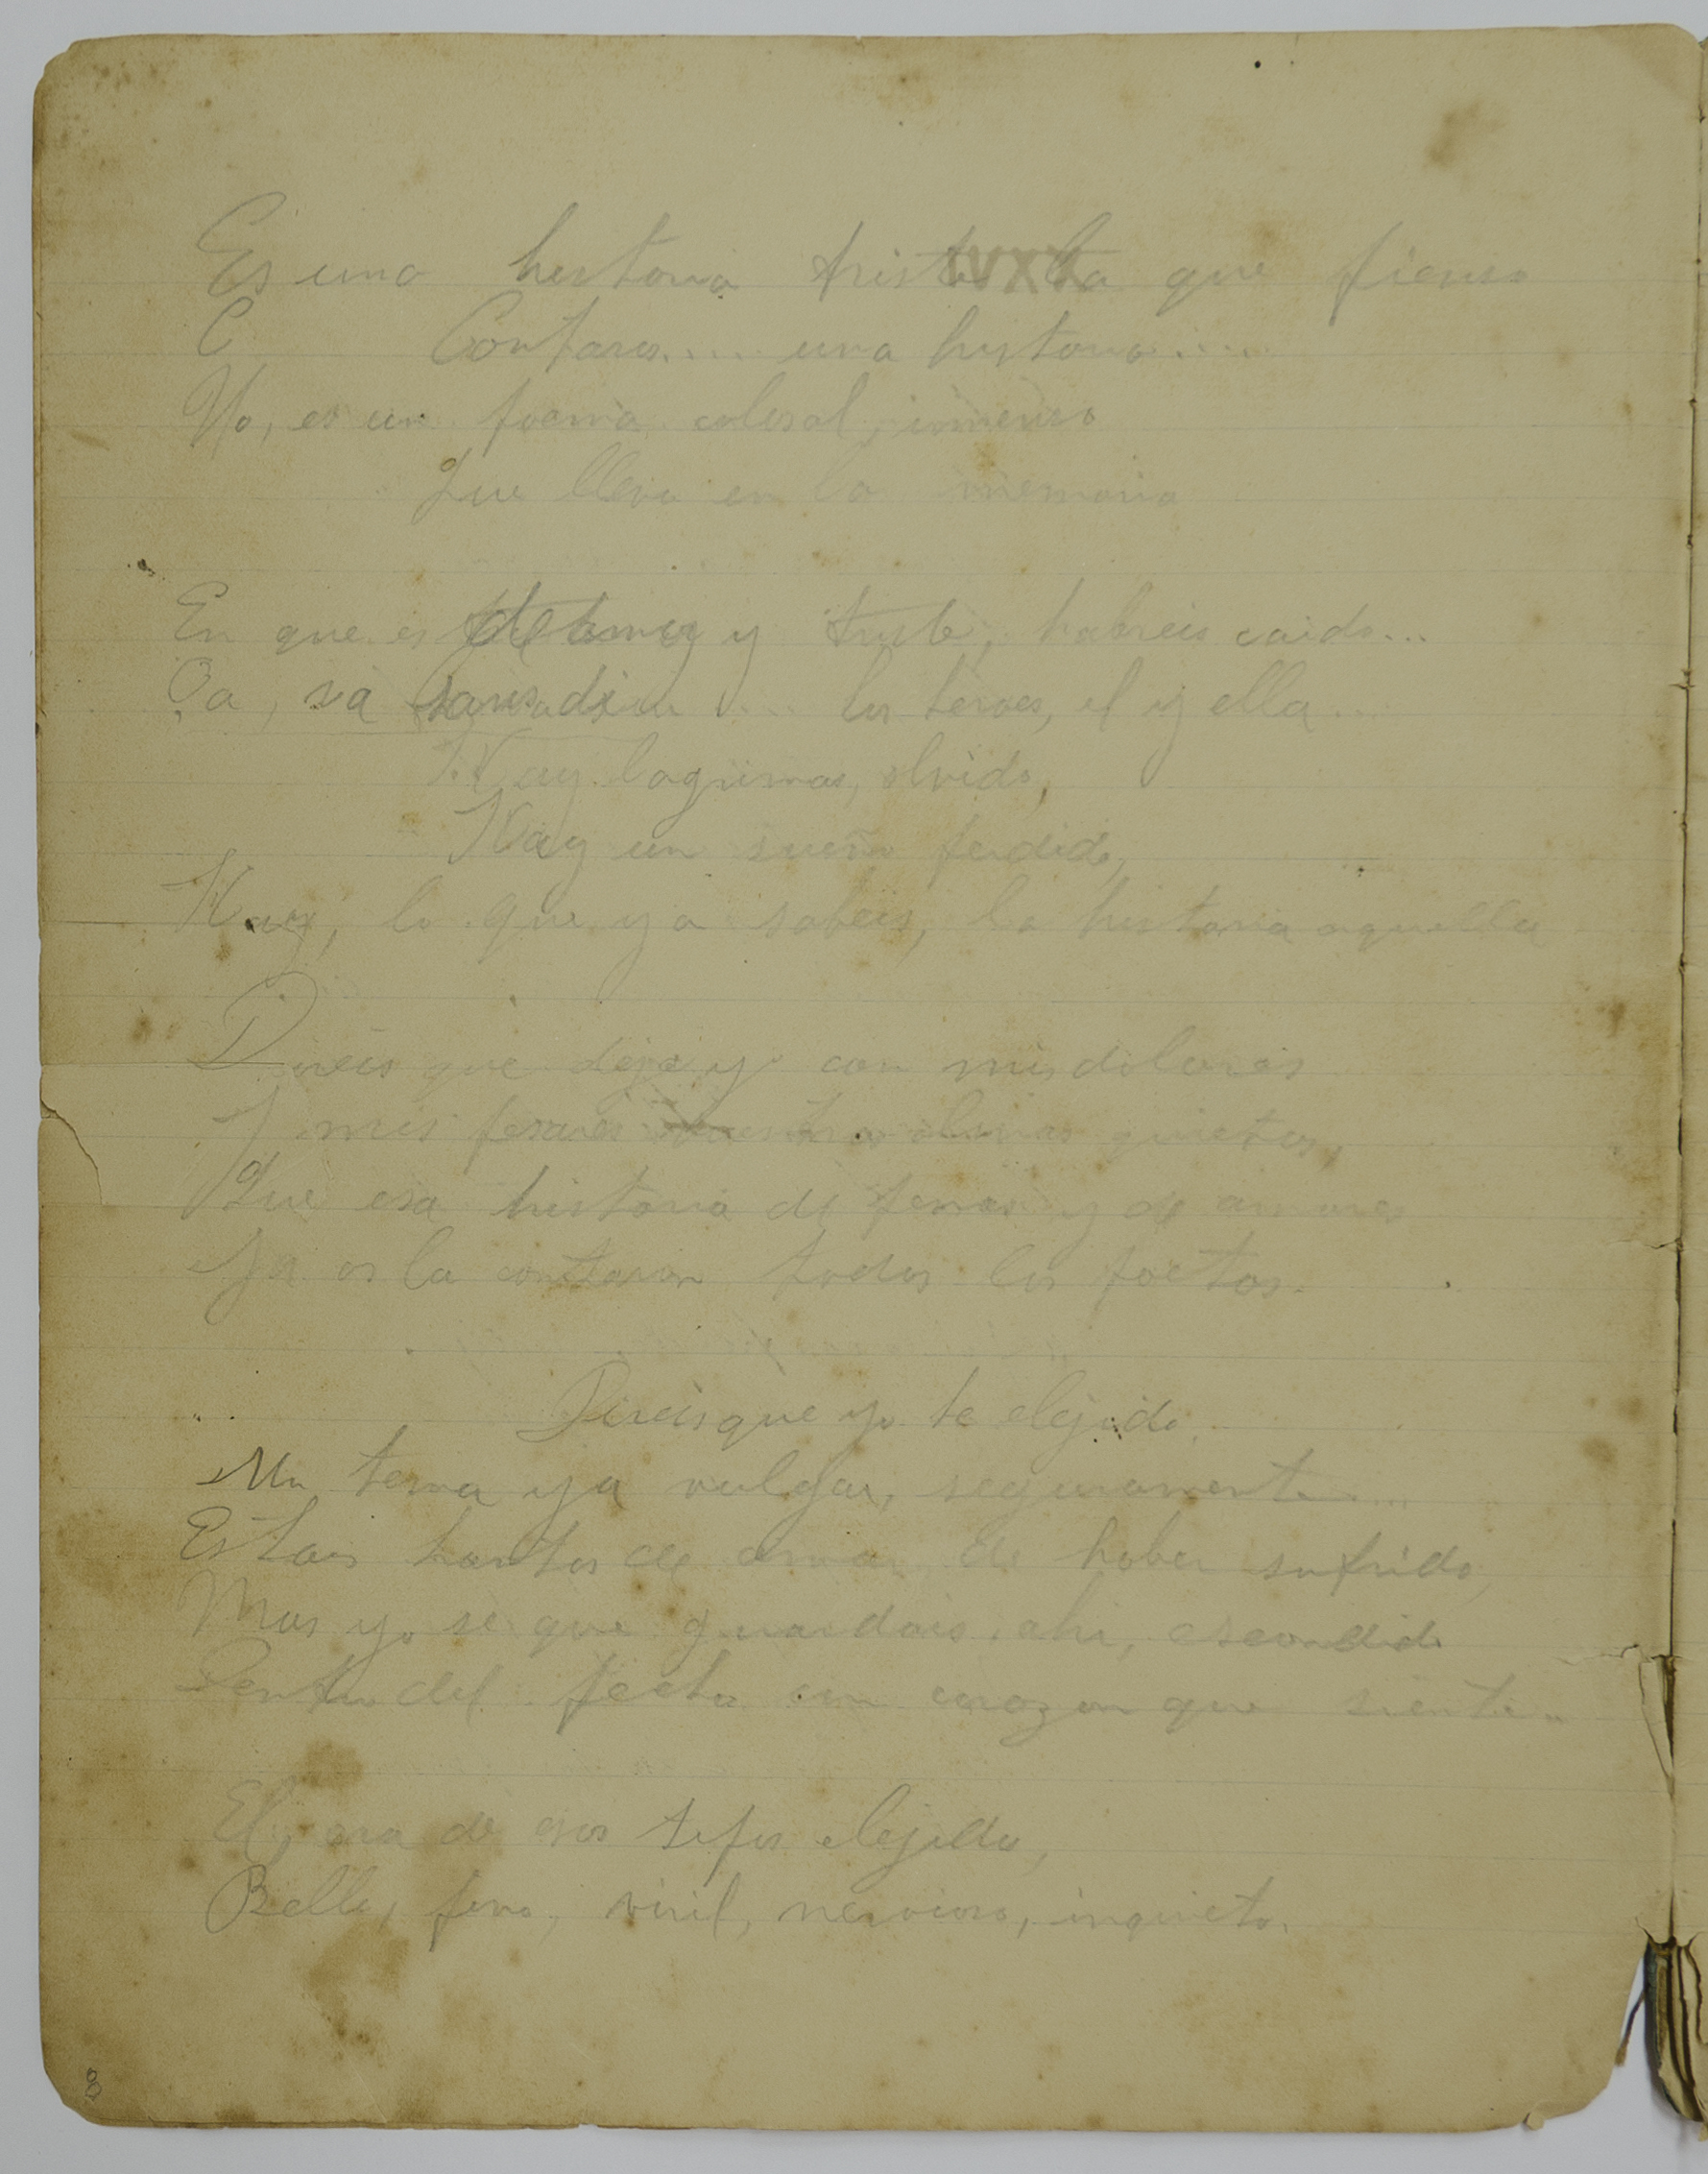 Es una historia triste la que pienso
Contaros.... una historia.....
No, es un poema colosal, inmenso
Que llevo en la memoria
En que es de amor y triste, habreis caido...
Ya, va los heroes, el y ella...
Hay lagrimas, olvido,
Hay un sueño perdido,
Hay, lo que ya sabeis, la historia aquella
Direis que deje yo con mis dolores
Y mis pesares vuestras almas quietas,
Que esa historia de penas y de amores
Ya os la contaron todos los poetas.
Direis que yo he elejido
Un tema ya vulgar, seguramente....
Estais hartos de amar, de haber sufrido,
Mas yo se que guardais ahi, escondido
Dentro del pecho un corazon que siente..
El, era de esos tipos elejido,
Bello, fino, viril, nervioso, inquieto.
8